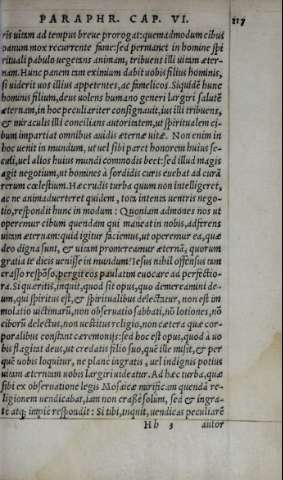 PARAPHR. CAP. VI. 117
ris uitam ad tempus breue prorogat: quemadmodum cibus
panum mox recurrente fame: sed permanet in homine spi
rituali pabulo uegetans animam, tribuens illi uitam æter-
nam. Hunc panem tam eximium dabit uobis filius hominis,
si uiderit uos illius appetentes, ac famelicos. Siquidē hunc
hominis filium, deus uolens humano generi largiri salutē
æternam, in hoc peculiariter consignauit, ius illi tribuens,
& miraculis illi concilians autoritatem, ut spiritualem ci-
bum impartiat omnibus auidis æternæ uitæ. Non enim in
hoc uenit in mundum, ut uel sibi paret honorem huius se-
culi, uel alios huius mundi commodis beet: sed illud magis
agit negotium, ut homines à sordidis curis euehat ad curā
rerum cœlestium. Hæc rudis turba quum non intelligeret,
ac ne animaduerteret quidem, tota intenta uentris nego-
tio, respondit hunc in modum: Quoniam admones nos ut
operemur cibum quendam qui maneat in nobis, adferens
uitam æternam: quid igitur faciemus, ut operemur ea, quæ
deo digna sunt, & uitam promereamur æternā, quorum
gratia te dicis uenisse in mundum? Iesus nihil offensus tam
crasso respōso, pergit eos paulatim euocare ad perfectio-
ra. Si quæritis, inquit, quod sit opus, quo demereamini de-
um, qui spiritus est, & spiritualibus delectatur, non est im
molatio uictimarū, non obseruatio sabbati, nō lotiones, nō
ciborū delectus, non uestitus religio, non cætera quæ cor-
poralibus constant cæremonijs: sed hoc est opus, quod à uo
bis flagitat deus, ut credatis filio suo, quē ille misit, & per
quē uobis loquitur, ne planè ingratis, uel indignis potius
uitam æternam uobis largiri uideatur. Ad hæc turba, quæ
sibi ex obseruatione legis Mosaicæ mirificam quendā re-
ligionem uendicabat, iam non crassè solum, sed & ingra-
te atq; impiè respondit: Si tibi, inquit, uendicas peculiarē
Hh 3 autor